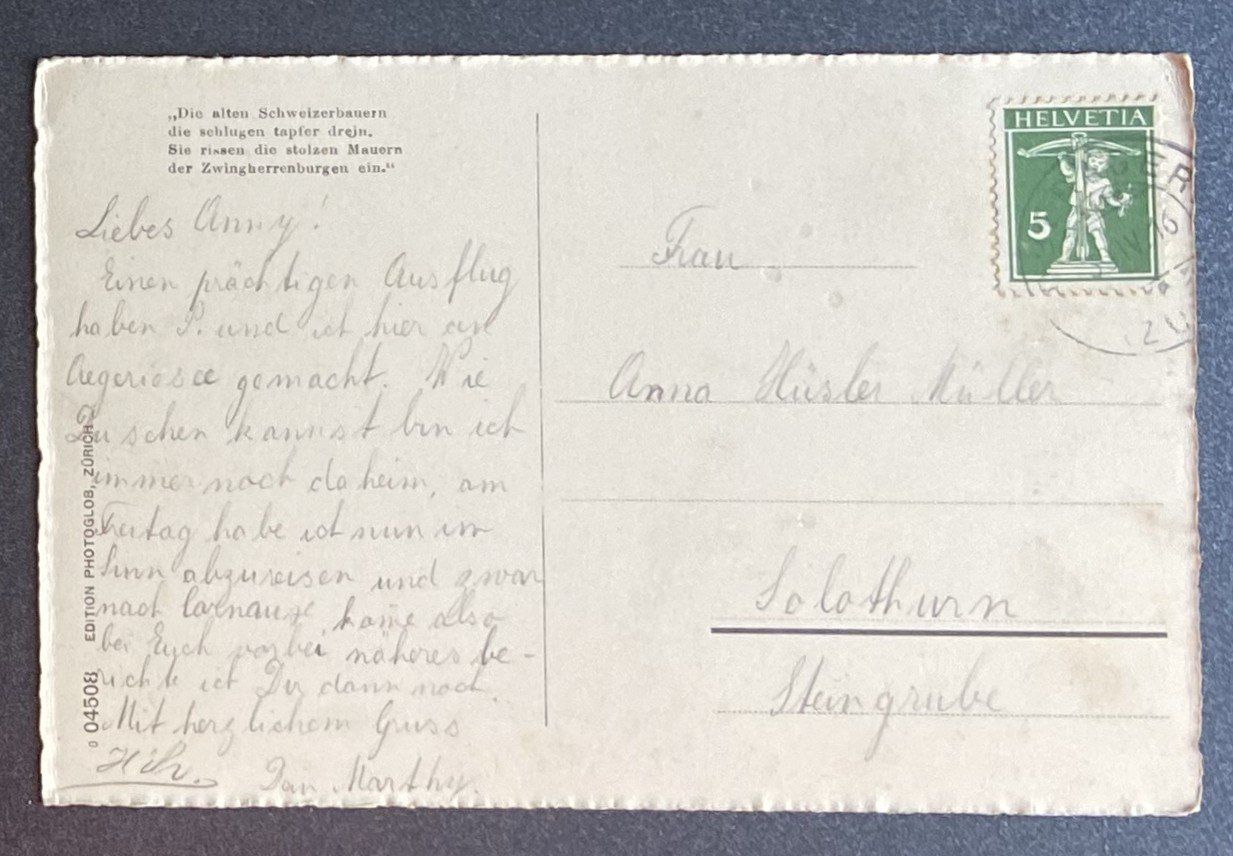 „Die alten Schweizerbauern
die schlugen tapfer drein.
Sie rissen die stolzen Mauern
der Zwingherrenburgen ein.“
Liebes Anny!
Einen prächtigen Ausflug
haben P. und ich hier am
Aegerisee gemacht. Wie
Du sehen kannst bin ich
immer noch daheim, am
Freitag habe ich nun im
Sinn abzureisen und zwar
nach kome also
bei Euch vorbei näheres be-
richte ich Dir dann noch.
Mit herzlichem Gruss
Marthy.
EDITION PHOTOGLOB, ZÜRICH
04508
HELVETIA
5
Frau
Anna Hüsler Müller
Solothurn
Steingrube